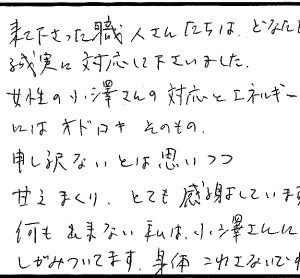 来て下さった職人さんたちは、どなたも
誠実に対応して下さいました。
女性の小澤さんの対応とエネルギー
にはオドロキそのもの。
申し訳ないとは思いつつ
甘えまくり、とても感謝しています
何も出来ない私は、小澤さんに
しがみついてます、身体こわさないで